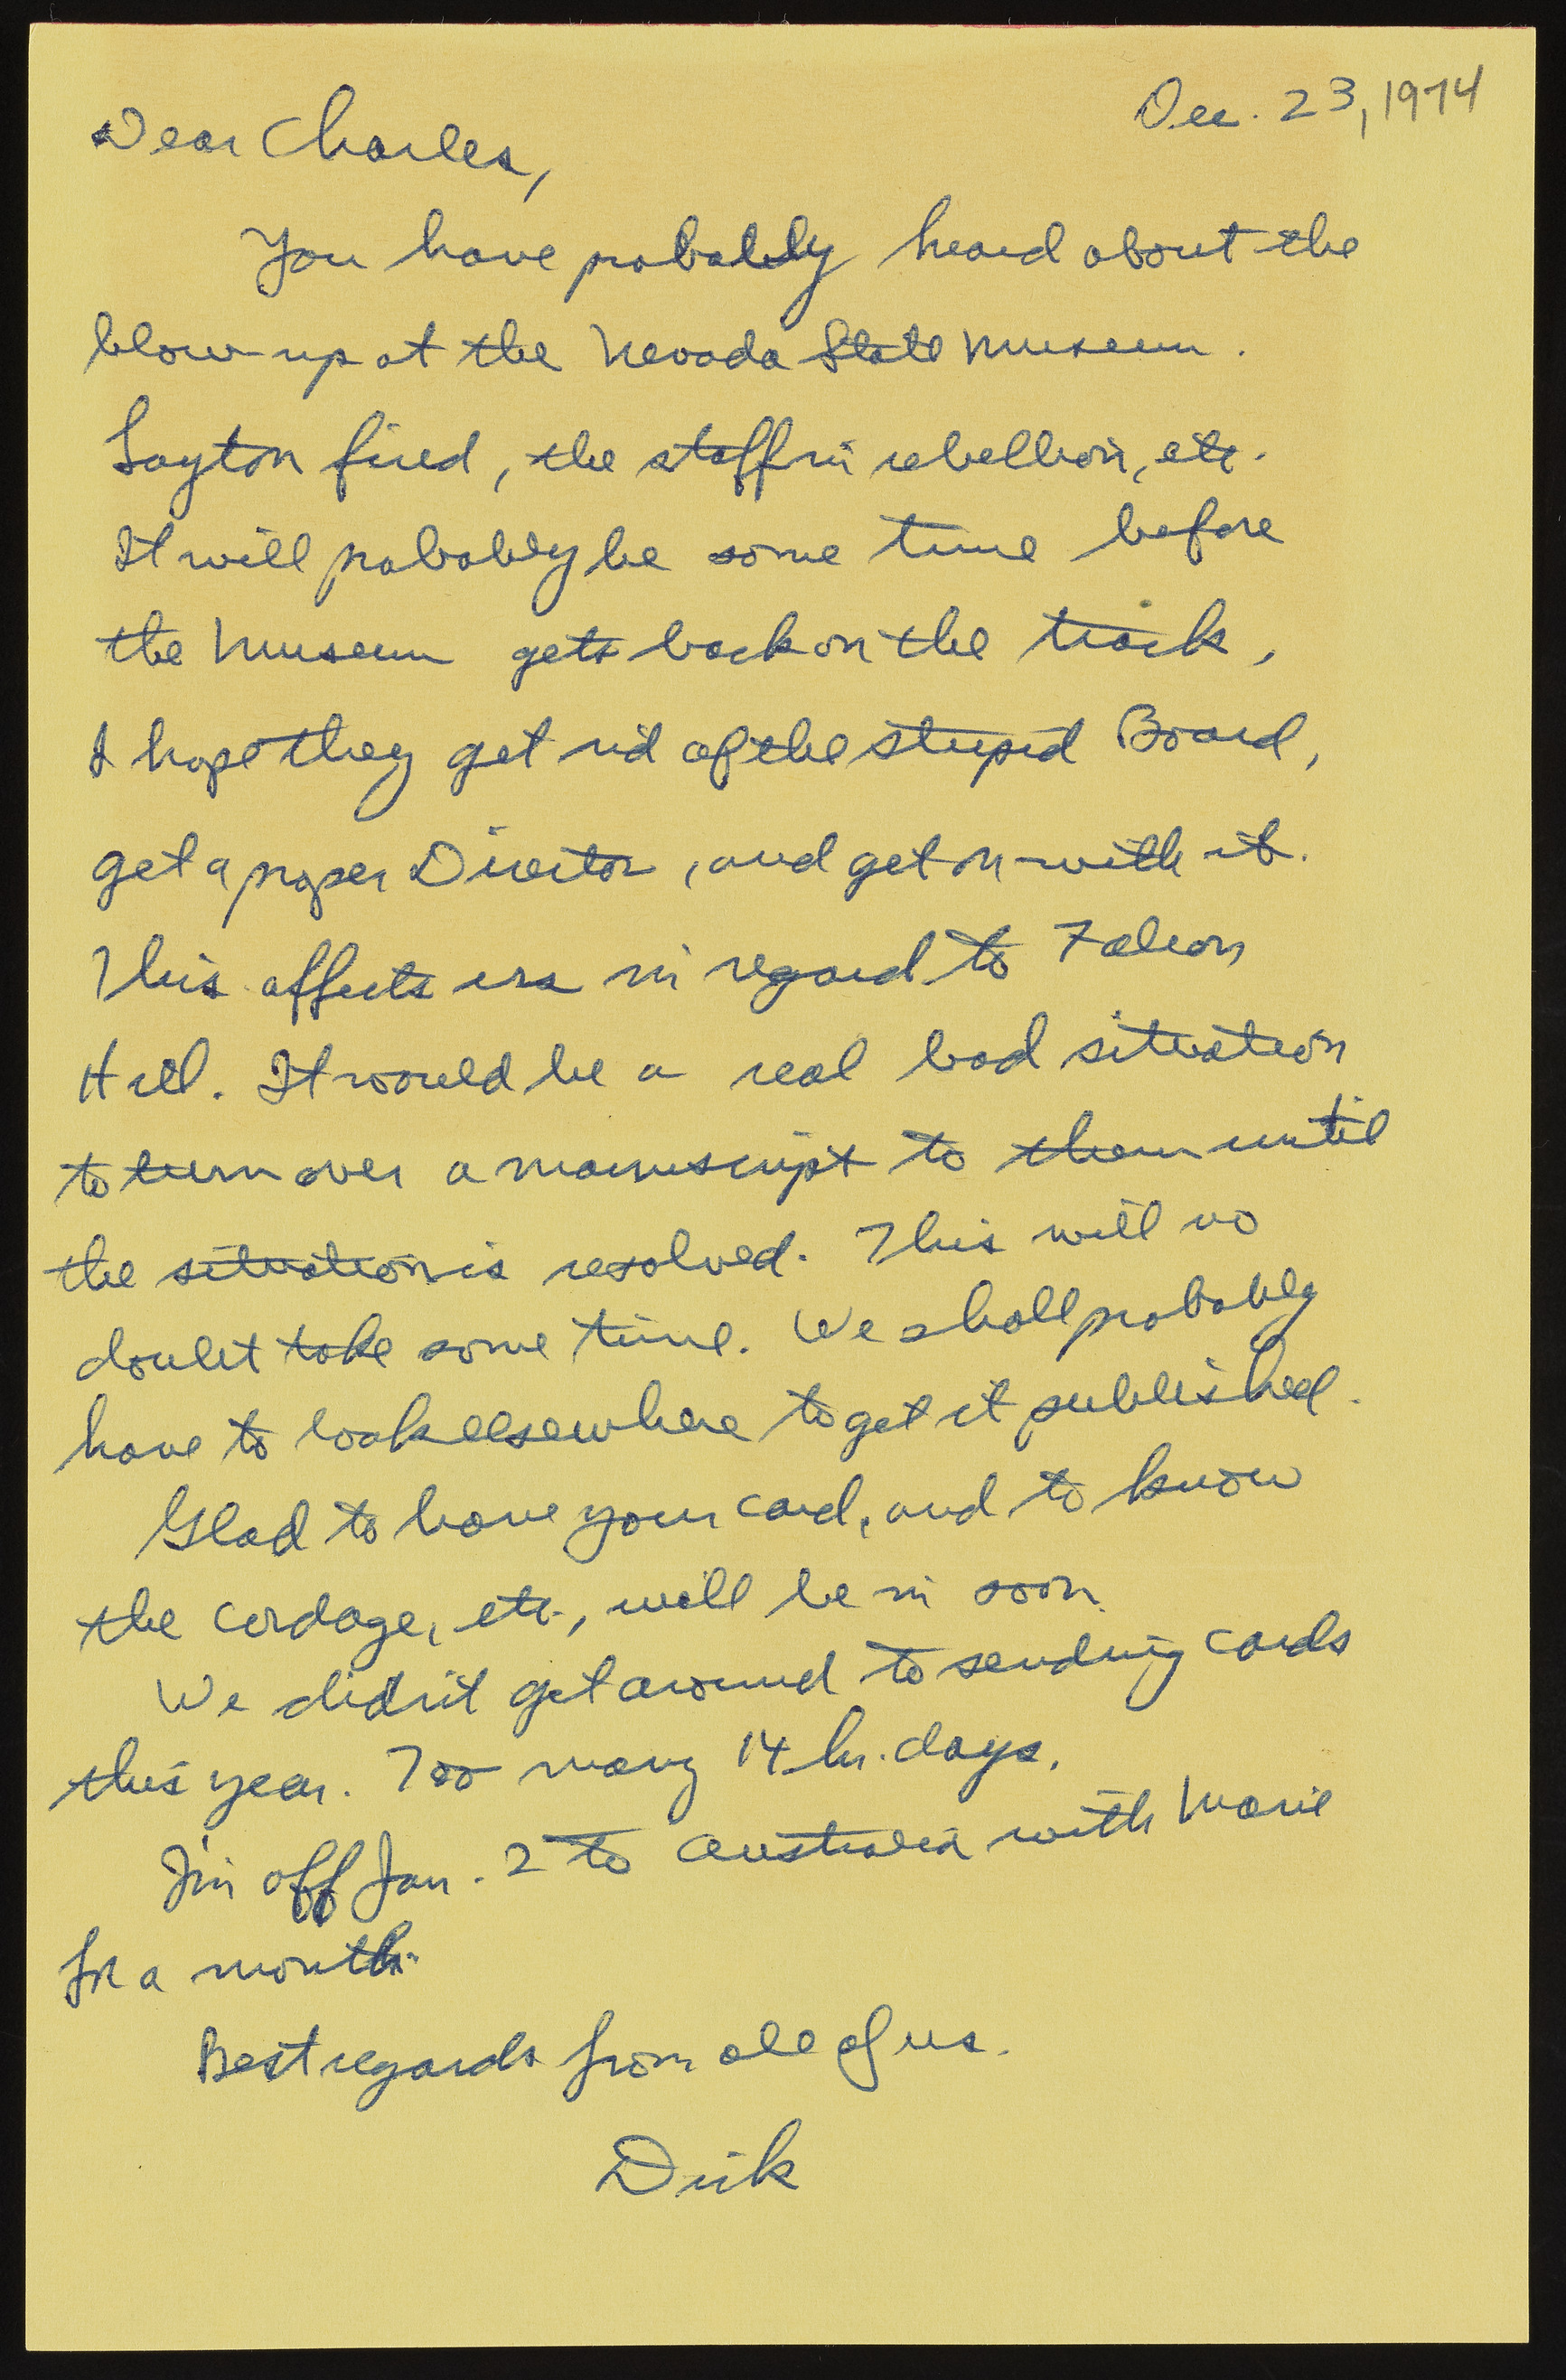 Dec. 23, 1974
Dear Charles,
You have probably heard about the
blow-up at the Nevada State Museum.
Layton fired, the staff in rebellion, etc.
It will probably be some time before
the Museum gets back on the track,
I hope they get rid of the stupid Board,
get a proper Director, and get on with it.
This affects us in regard to Falcon
Hill. It would be a real bad situation
to turn over a manuscript to them until
the situation is resolved. This will no
doubt take some time. We shall probably
have to look elsewhere to get it published.
Glad to have your card, and to know
the cordage, etc., will be in soon.
We didn't get around to sending cards
this year. Too many 14 hr. days.
I'm off Jan. 2 to Australia with Marie
for a month.
Best regards from all of us.
Dick